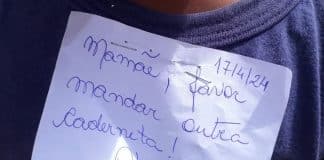 Mamãe, favor 17/4/24
mandar outra
Caderneta!